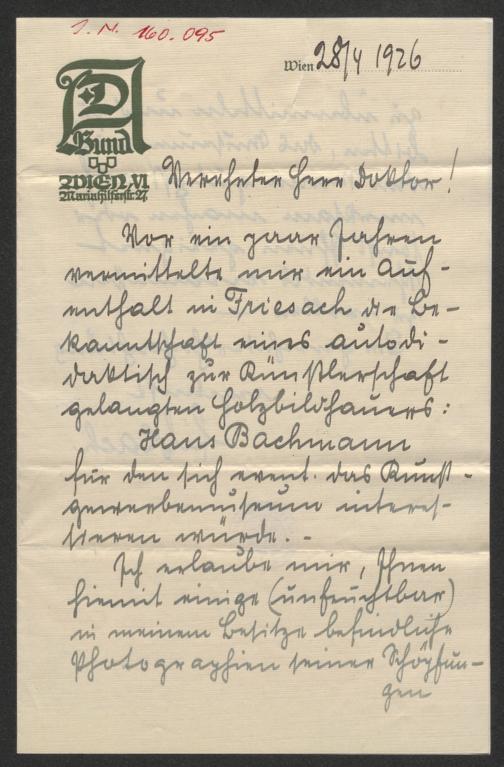 I. N. 160.095
Wien 28/4 1926
AD
Bund
WIEN, VI
Mariahilferstr. 27.
Verehrter Herr Doktor!
Vor ein paar Jahren
vermittelte mir ein Auf-
enthalt in Friesach die Be-
kanntschaft eines autodi-
daktisch zur Künstlerschaft
gelangten Holzbildhauers:
Hans Bachmann
für den sich event. das Kunst-
gewerbemuseum interes-
sieren würde. -
Ich erlaube mir, Ihnen
hiemit einige (
)
in meinem Besitze befindliche
Photographien seiner Schöpfun-
gen